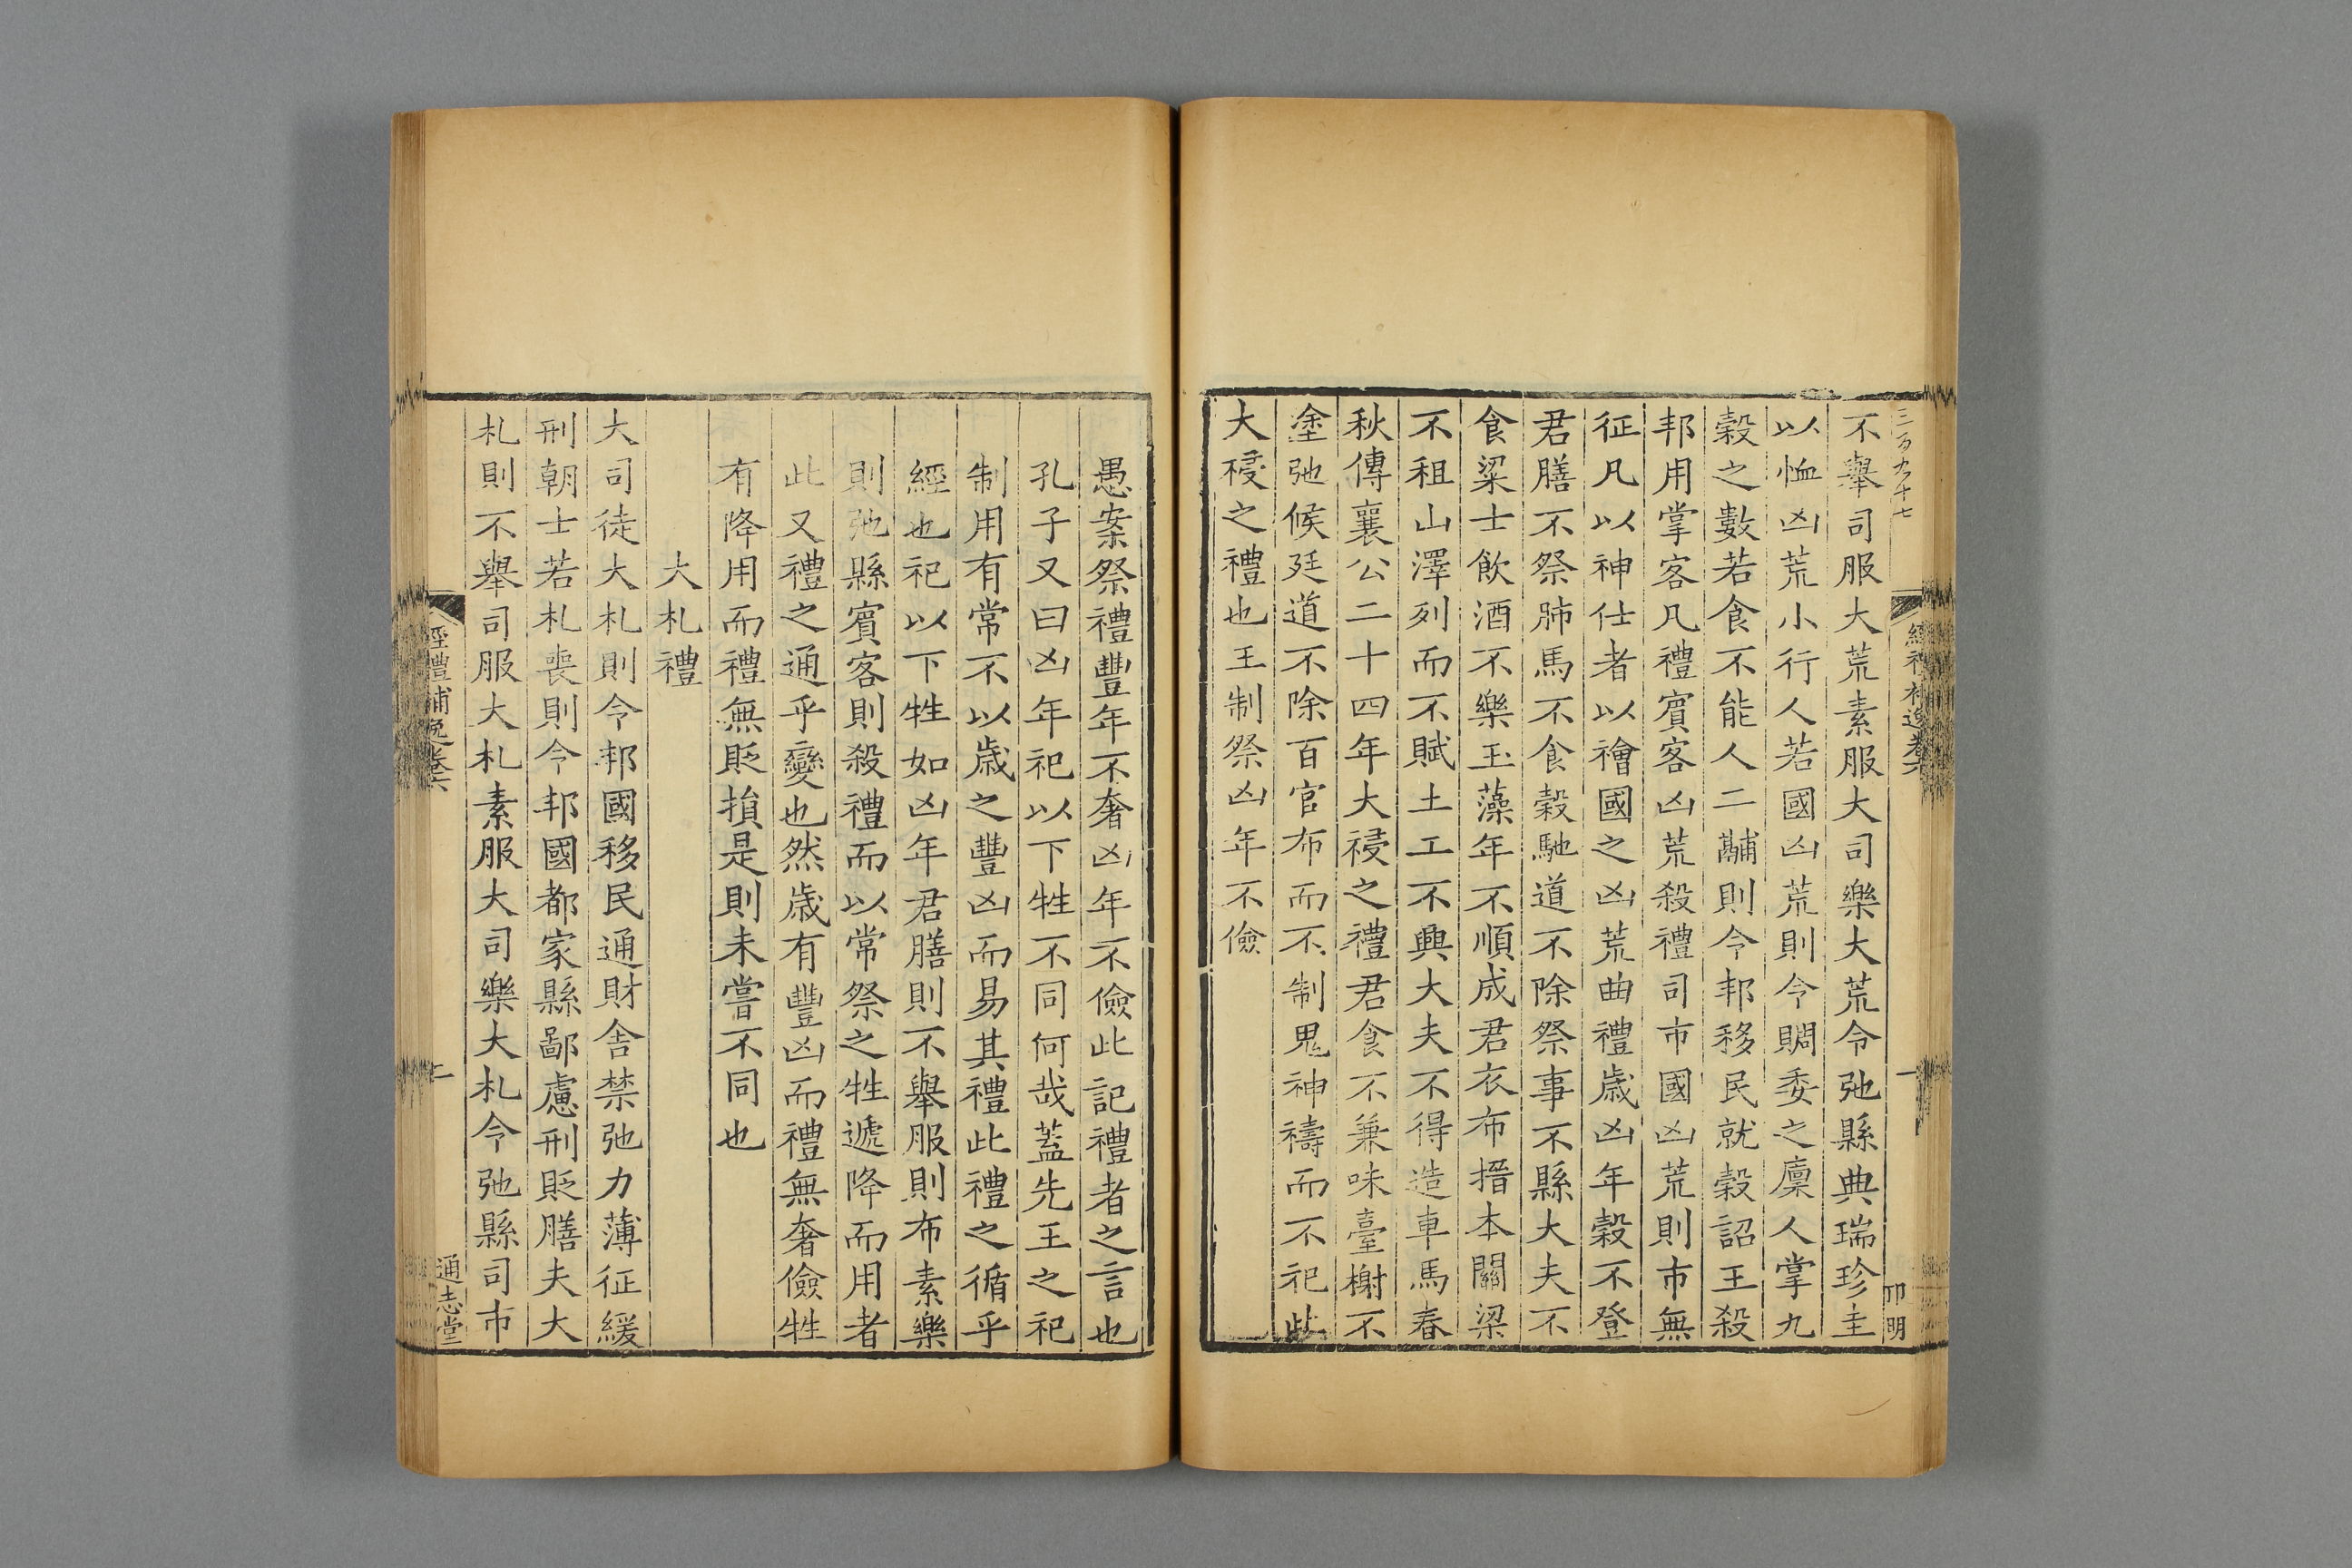 三百九十七
不舉司服大荒素服大司樂大荒令弛縣典瑞珍圭
以恤凶荒小行人若國凶荒則令賙委之廩人掌九
穀之數若食不能人二鬴則令邦移民就穀詔王殺
邦用掌客凡禮賓客凶荒殺禮司市國凶荒則市無
征凡以神仕者以禬國之凶荒曲禮歲凶年穀不登
君膳不祭肺馬不食穀馳道不除祭事不縣大夫不
食粱士飲酒不樂玉藻年不順成君衣布搢本關梁
不租山澤列而不賦土工不興大夫不得造車馬春
秋傳襄公二十四年大祲之禮君食不兼味臺榭不
塗弛候廷道不除百官布而不制鬼神禱而不祀此
大祲之禮也王制祭凶年不儉
經禮補逸卷六
一
卬明
愚案祭禮豐年不奢凶年不儉此記禮者之言也
孔子又曰凶年祀以下牲不同何哉蓋先王之祀
制用有常不以歲之豐凶而易其禮此禮之循乎
經也祀以下牲如凶年君膳則不舉服則布素樂
則弛縣賓客則殺禮而以常祭之牲遞降而用者
此又禮之通乎變也然歲有豐凶而禮無奢儉牲
有降用而禮無貶損是則未嘗不同也
大札禮
大司徒大札則令邦國移民通財舍禁弛力薄征緩
刑朝士若札喪則令邦國都家縣鄙慮刑貶膳夫大
札則不舉司服大札素服大司樂大札令弛縣司市
經禮補逸卷六
二
通志堂